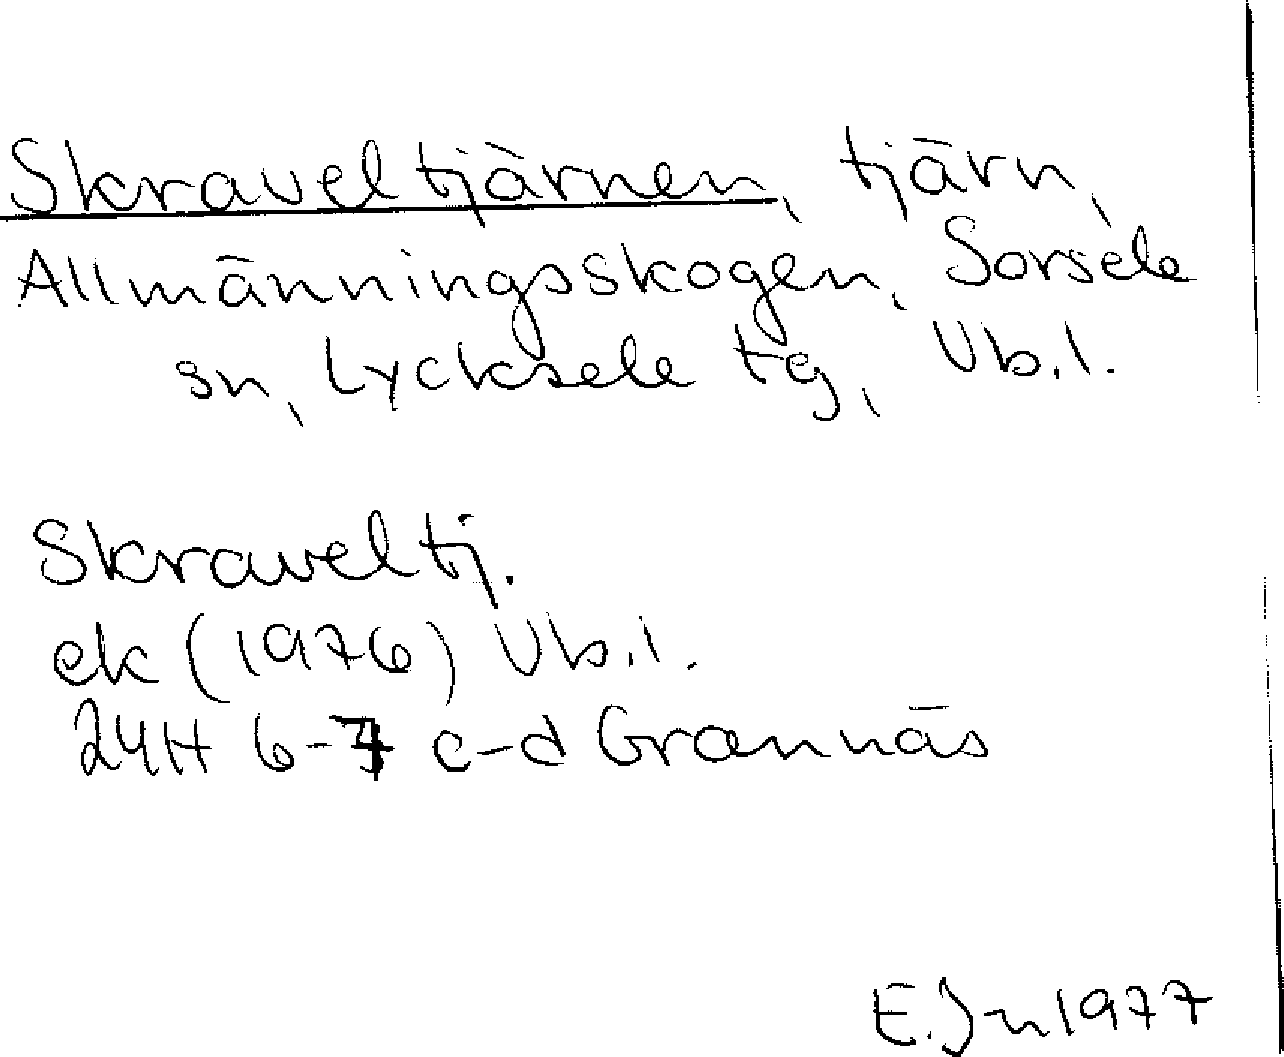 Skraveltjärnen, tjärn,
Allmänningsskogen, Sorsele
sn, Lycksele tg, Vb.l.
Skraveltj.
ek (1976) Vb.l.
24H 6-7 c-d Grannäs
E.Jn 1977